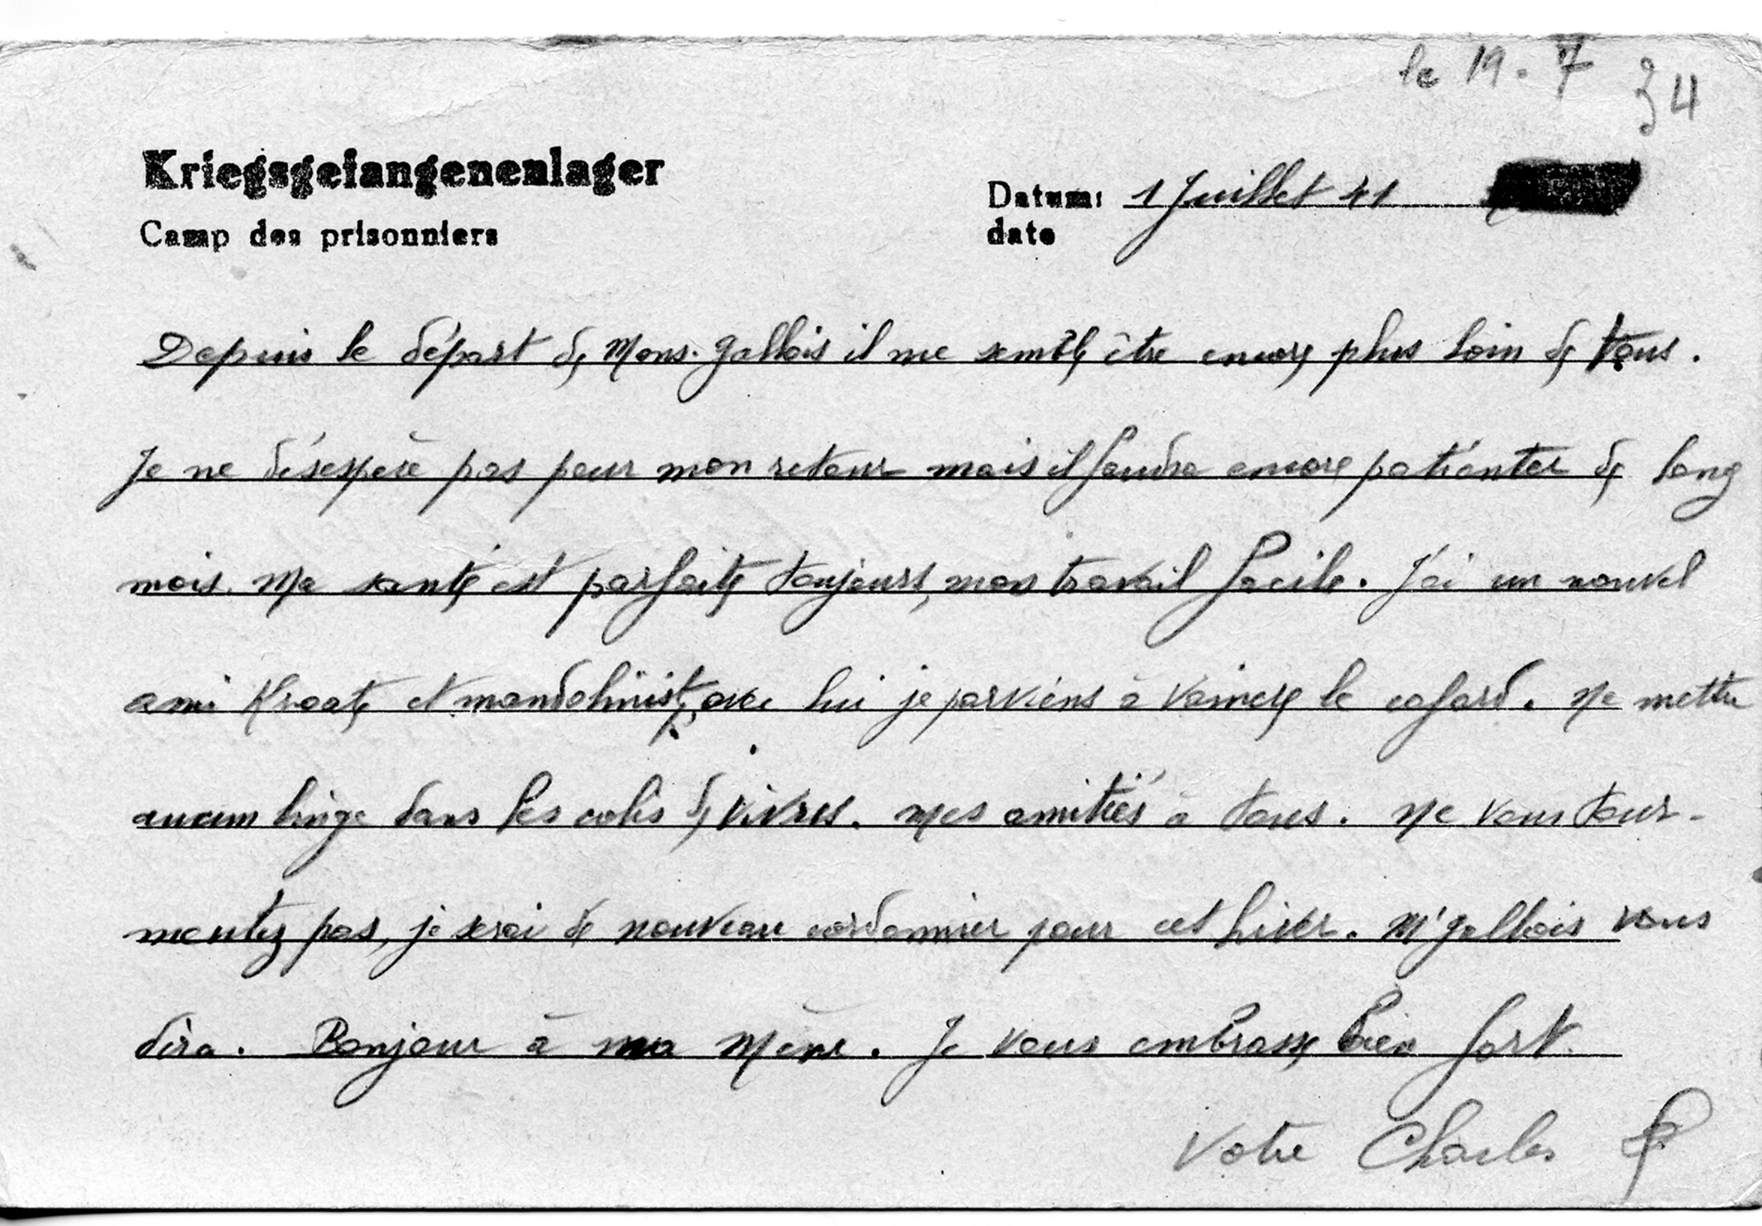 le 19.7 34
Kriegsgefangenenlager
Camp des prisonniers
Datum: 1 Juillet 41
date
Depuis le départ de Mons. Gallois il me semble être encore plus loin de tous.
Je ne désespère pas pour mon retour mais il faudra encore patienter de long
mois. Ma santé est parfaite toujours, mon travail facile. J'ai un nouvel
ami Kroate et mandoliniste, avec lui je parviens à vaincre le cafard. Ne mettre
aucun linge dans les colis de vivres. Mes amitiés à tous. Ne vous tour-
mentez pas, je serai de nouveau cordonnier pour cet hiver. Mr Gallois vous
dira. Bonjour à ma Mère. Je vous embrasse bien fort
Votre Charles